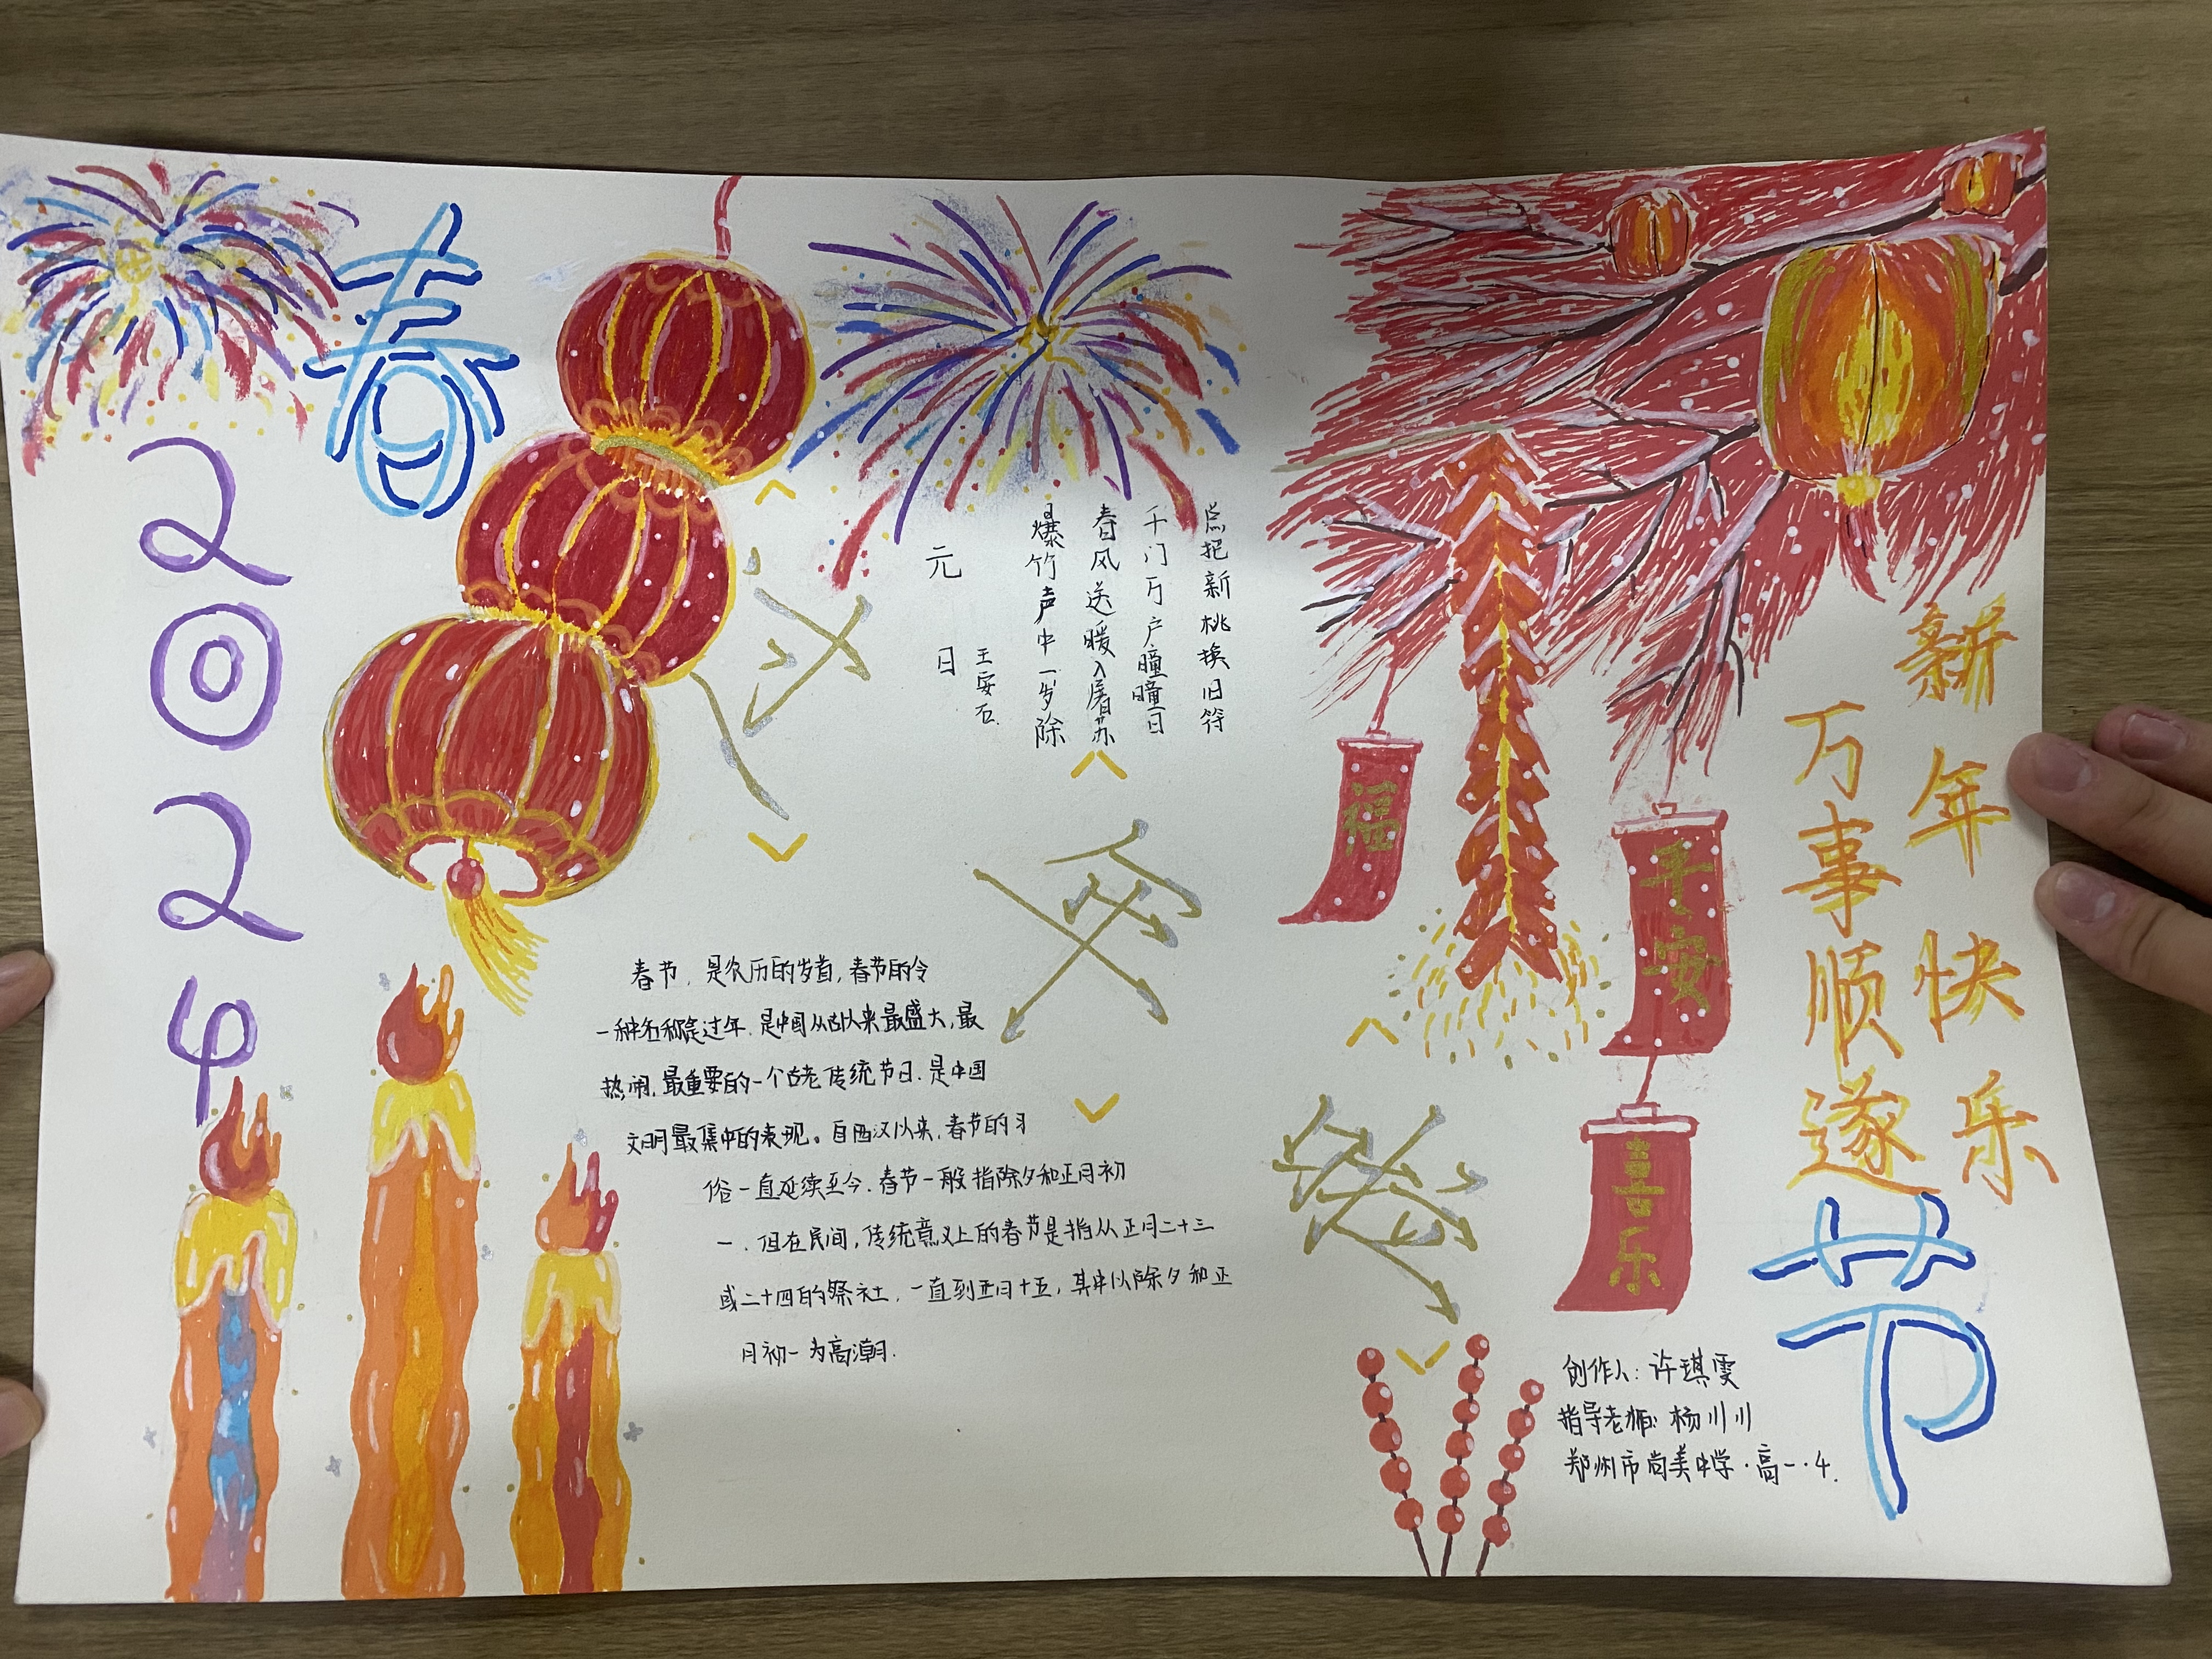 春
2024
元日
王安石.
爆竹声中一岁除
春风送暖入屠苏
千门万户瞳瞳日
总把新桃换旧符
春节,是农历的岁首,春节的令
一种名称是过年.是中国从古以来最盛大,最
热闹,最重要的一个古老传统节日.是中国
文明最集中的表现。自西汉以来,春节的习
俗一直延续至今.春节一般指除夕和正月初
一.但在民间,传统意义上的春节是指从正月二十三
或二十四的祭社,一直到正月十五,其中以除夕和正
月初一为高潮.
福
平安
喜乐
新年快乐
万事顺遂
节
创作人:许琪雯
指导老师:杨川川
郑州市尚美中学·高一·4.